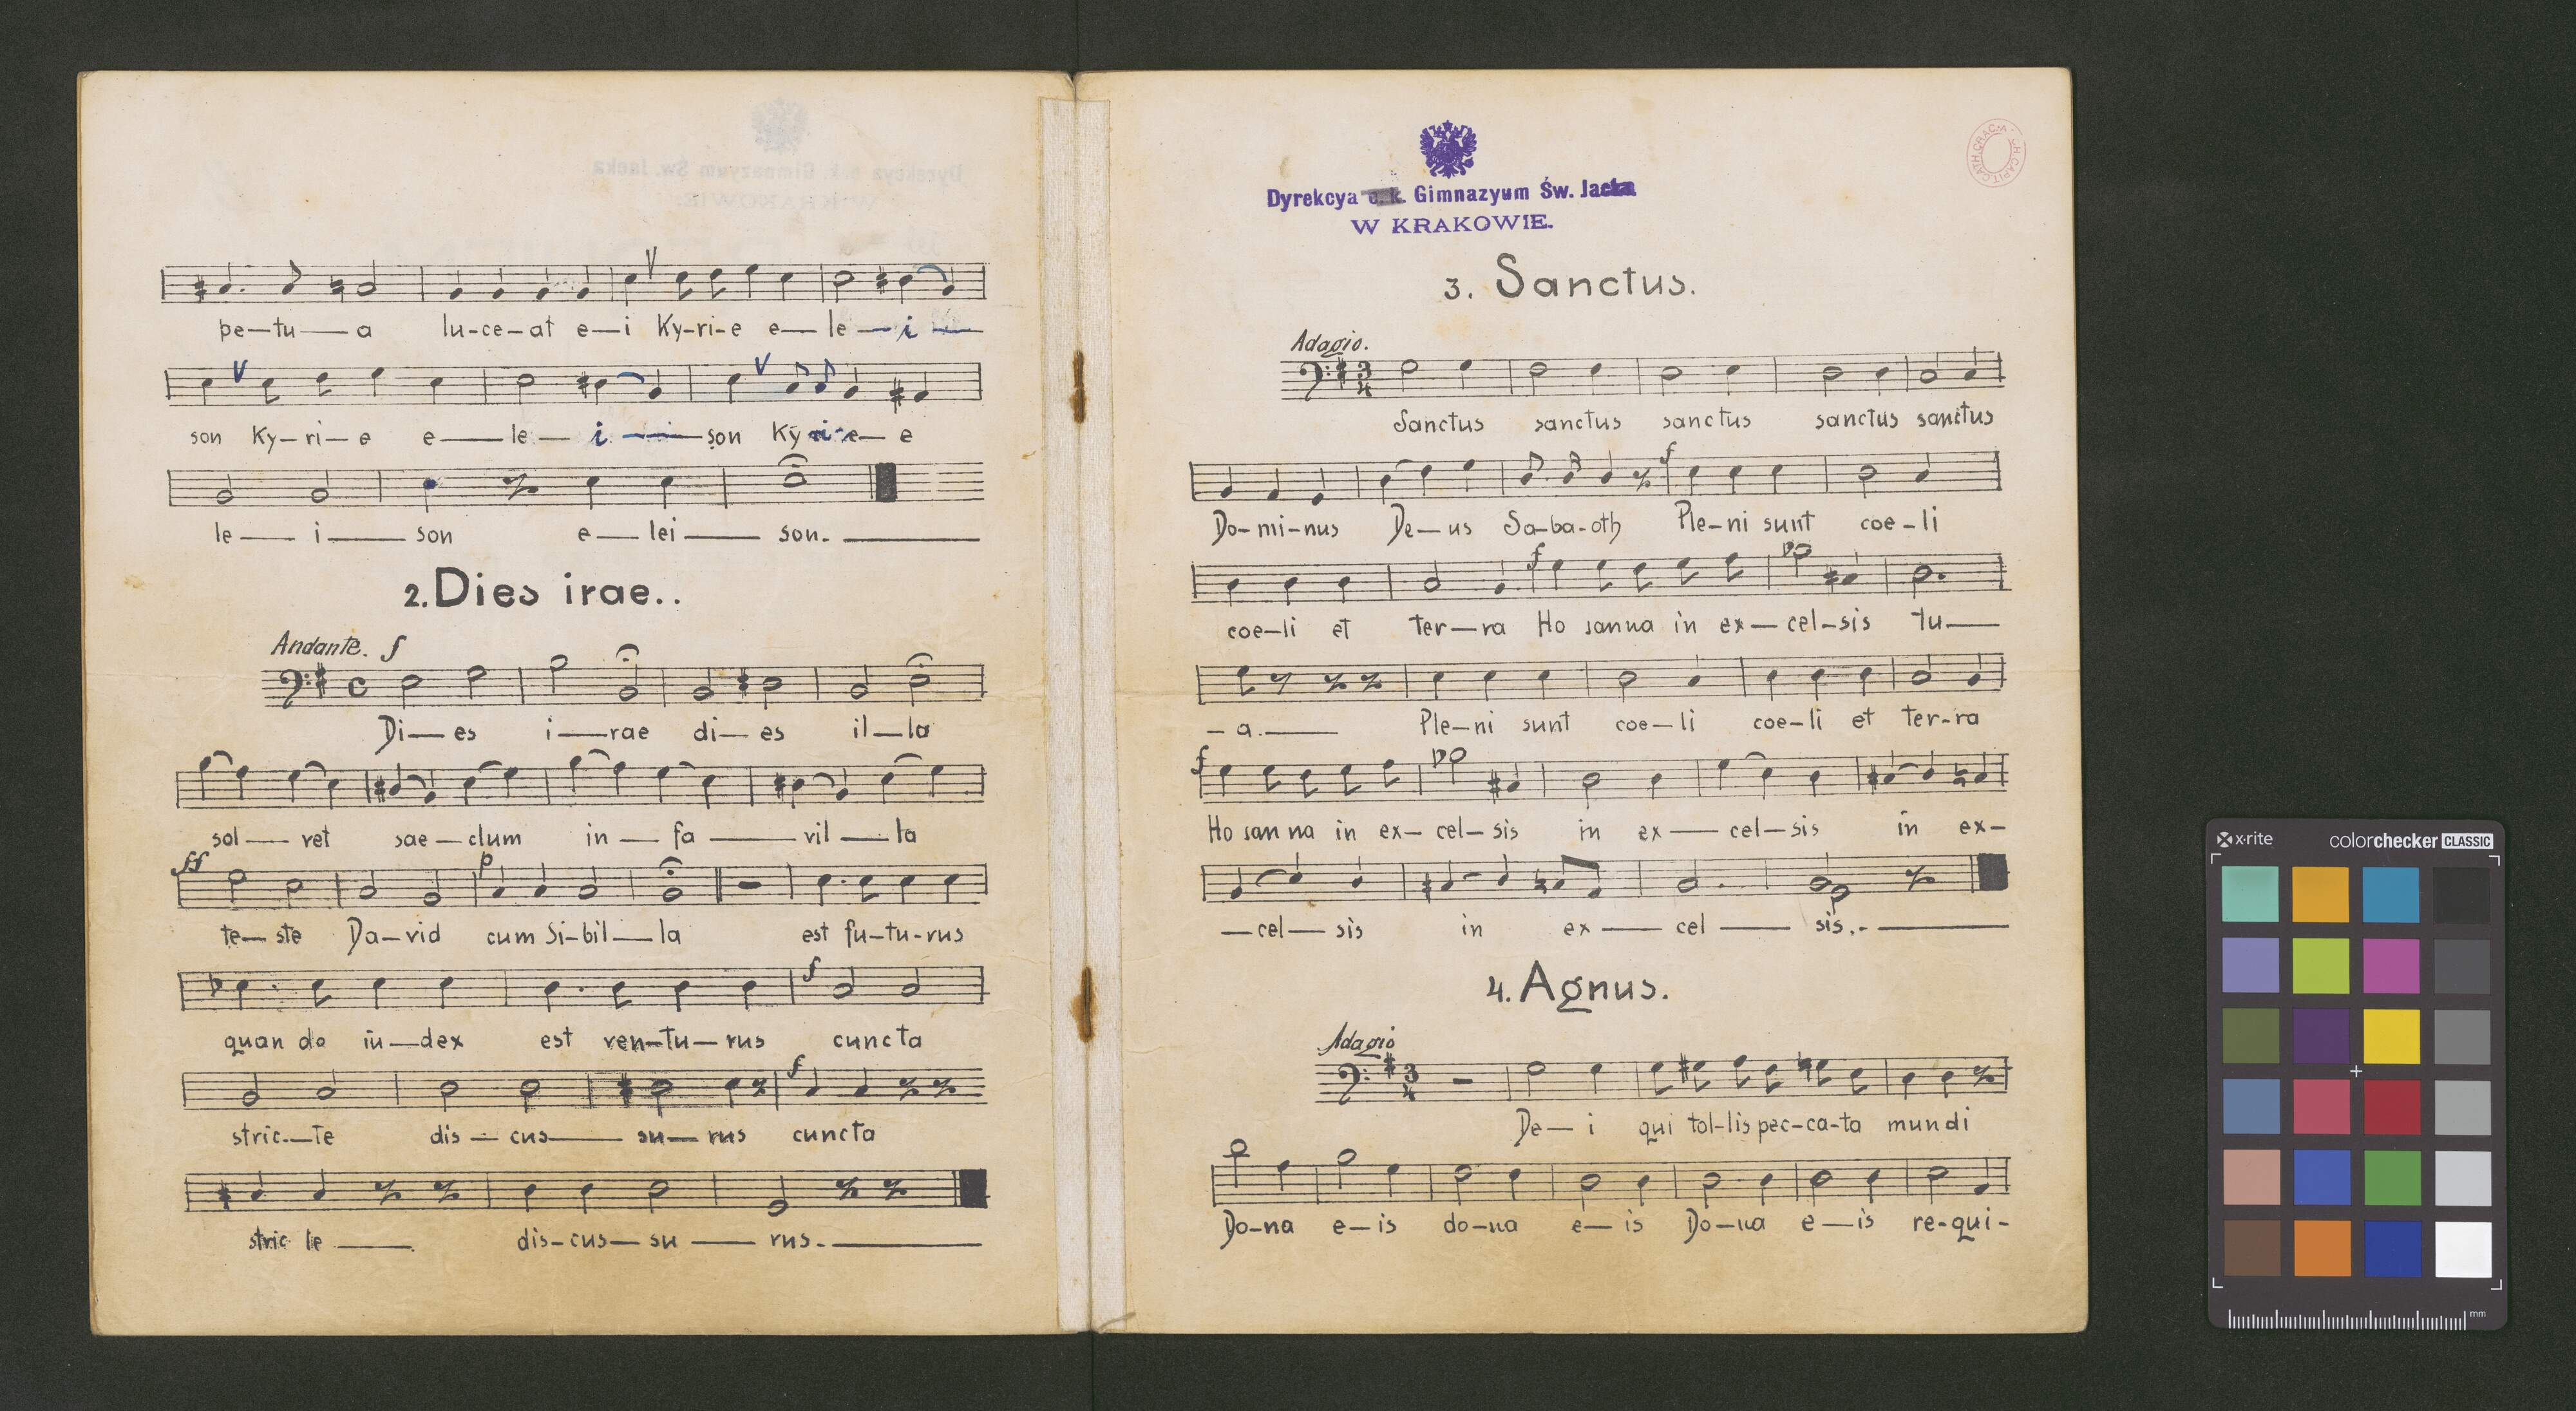 pe—tu—a lu-ce-at e—i Ky-ri-e e—le—i—
son Ky—ri—e e—le—i—son Ky-ri-e—e
le—i—son e—lei—son.
2. Dies irae..
Andante. f
Di—es i—rae di—es il—la
sol—vet sae—clum in—fa—vil—la
ff p
te—ste Da—vid cum Si-bil—la est fu-tu-rus
f
quan do iu—dex est ven—tu—rus cuncta
f
stric—te dis—cus—su—rus cuncta
stric te dis-cus—su—rus.
Dyrekcya c. k. Gimnazyum Św. Jacka
W KRAKOWIE.
3. Sanctus.
Adagio.
3 4
Sanctus sanctus sanctus sanctus sanctus
f
Do-mi-nus De-us Sa-ba-oth Ple-ni sunt coe-li
f
coe-li et ter—ra Ho sanna in ex—cel-sis tu—
—a. Ple-ni sunt coe—li coe-li et ter-ra
f
Ho san na in ex—cel—sis in ex—cel—sis in ex—
—cel—sis in ex—cel—sis.
4. Agnus.
Adagio
3 4
De—i qui tol-lis pec-ca-ta mundi
Do-na e—is do-na e—is Do-na e—is re-qui-
x-rite colorchecker CLASSIC
mm